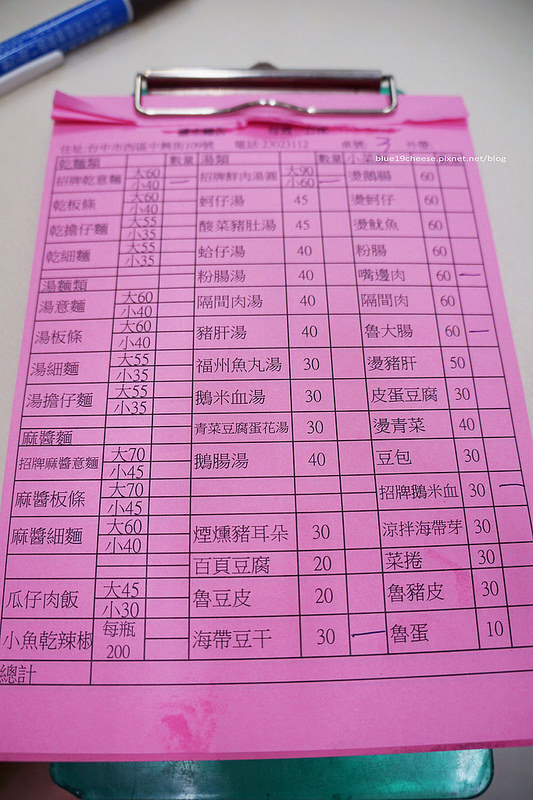 住址:台中市西區中興街109號 電話:23023112 桌號: 3 外帶:
blue19cheese.pixnet.net/blog
乾麵類 數量 湯類 數量 小菜
招牌乾意麵 大60 小40 一 招牌鮮肉湯圓 大90 小60 一 燙鵝腸 60
乾板條 大60 小40 蚵仔湯 45 燙蚵仔 60
乾擔仔麵 大55 小35 酸菜豬肚湯 45 燙魷魚 60
乾細麵 大55 小35 蛤仔湯 40 粉腸 60
湯麵類 粉腸湯 40 嘴邊肉 60 一
湯意麵 大60 小40 隔間肉湯 40 隔間肉 60
湯板條 大60 小40 豬肝湯 40 魯大腸 60 一
湯細麵 大55 小35 福州魚丸湯 30 燙豬肝 50
湯擔仔麵 大55 小35 鵝米血湯 30 皮蛋豆腐 30
麻醬麵 青菜豆腐蛋花湯 30 燙青菜 40
招牌麻醬意麵 大70 小45 鵝腸湯 40 豆包 30
麻醬板條 大70 小45 招牌鵝米血 30 一
麻醬細麵 大60 小40 煙燻豬耳朵 30 涼拌海帶芽 30
百頁豆腐 20 菜捲 30
瓜仔肉飯 大45 小30 魯豆皮 20 魯豬皮 30
小魚乾辣椒 每瓶 200 海帶豆干 30 一 魯蛋 10
總計